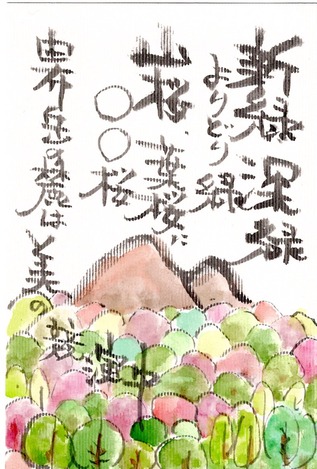 新緑 深緑
よりどり緑
山桜、葉桜に
〇〇桜
由布岳の麓は 美の